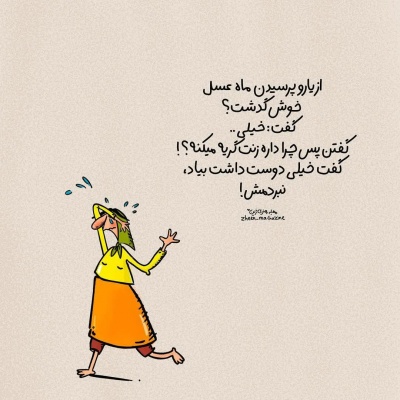 از یارو پرسیدن ماه عسل
خوش گذشت؟
گفت: خیلی ..
گفتن پس چرا داره زنت گریه میکنه؟!
گفت خیلی دوست داشت بیاد،
نبردمش!
zhera_magazine